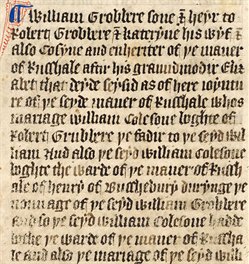 William Groblere sone & heyr to
Robert Groblere & kateryne his wyf &
also Cosyne and enheriter of ye maner
of Russhale aftir his grandmodir Eli
abet that deyde seysid as of here ioyntu
re of ye seyde maner of Russhale whos
mariage william Colesone boghte of
Robert Grubbere ye fadir to ye seyd will
iam And also ye seyd william colesone
boghte the warde of ye maner of Russh
ale of henry of Busshebury durynge ye
nonnage of ye seyd william Groblere
And so ye seyd william Colesone hadde
bothe ye warde of ye maner of Russha
le and also ye mariage of ye seyd will